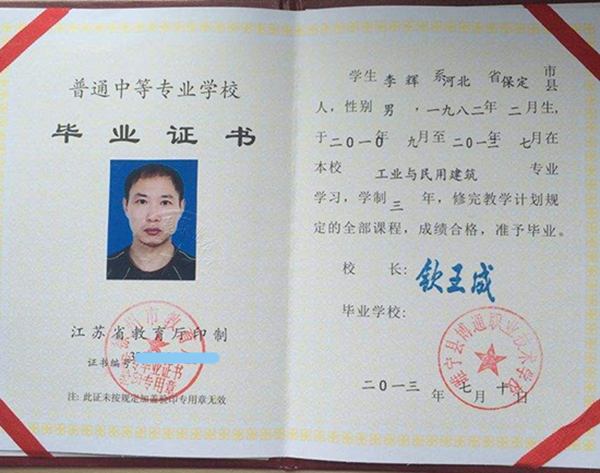 普通中等专业学校
毕业证书
江苏省教育厅印制
证书编号3
注: 此证未按规定加盖验印专用章无效
学生 李辉 系 河北 省 保定 市县
人，性别 男，一九八二年 二月生，
于二〇一〇年 九月至 二〇一三 七月在
本校 工业与民用建筑 专业
学习，学制 三 年，修完教学计划规
定的全部课程，成绩合格，准予毕业。
校 长：
毕业学校：
睢宁县博通职业技术学校
二〇一三 年 七 月 十 日